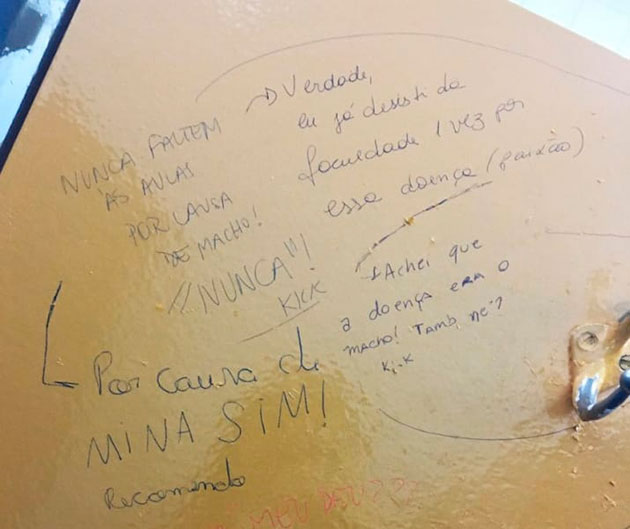 NUNCA FALTEM
AS AULAS
POR CAUSA
DE MACHO!
"NUNCA"!
KKK
Verdade,
eu já desisti da
faculdade 1 vez por
essa doença (paixão)
Achei que
a doença era o
macho! Tamb. né?
Por causa de
MINA SIM!
Recomendo
MEU DEU